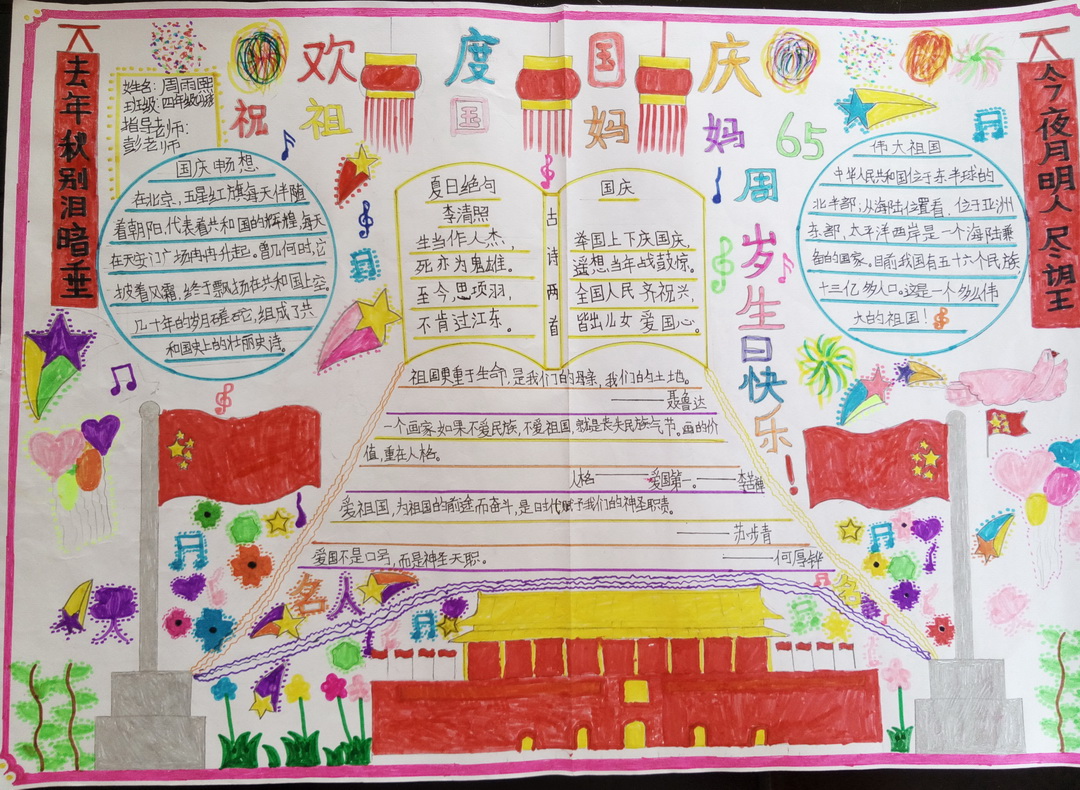 欢度国庆
祝祖国妈妈65
周岁生日快乐!
去年秋别泪暗垂
今夜月明人尽望
姓名:周雨熙
班级:四年级
指导老师:
彭老师
国庆畅想
在北京,五星红旗每天伴随
着朝阳,代表着共和国的辉煌,每天
在天安门广场冉冉升起。曾几何时,它
披着风霜,终于飘扬在共和国上空。
几十年的岁月磋砣,组成了共
和国史上的壮丽史诗。
夏日绝句
李清照
生当作人杰,
死亦为鬼雄。
至今思项羽,
不肯过江东。
古诗两首
国庆
举国上下庆国庆,
遥想当年战鼓惊。
全国人民齐祝兴,
皆出儿女爱国心。
伟大祖国
中华人民共和国位于东半球的
北半部;从海陆位置看,位于亚洲
东部,太平洋西岸是一个海陆兼
备的国家。目前我国有五十六个民族
十三亿多人口。这是一个多么伟
大的祖国!
祖国更重于生命,是我们的母亲,我们的土地。
——聂鲁达
一个画家如果不爱民族,不爱祖国,就是丧失民族气节。画的价
值,重在人格。
人格——爱国第一。——李苦禅
爱祖国,为祖国的前途而奋斗,是时代赋予我们的神圣职责。
——苏步青
爱国不是口号,而是神圣天职。
——何厚铧
名人名